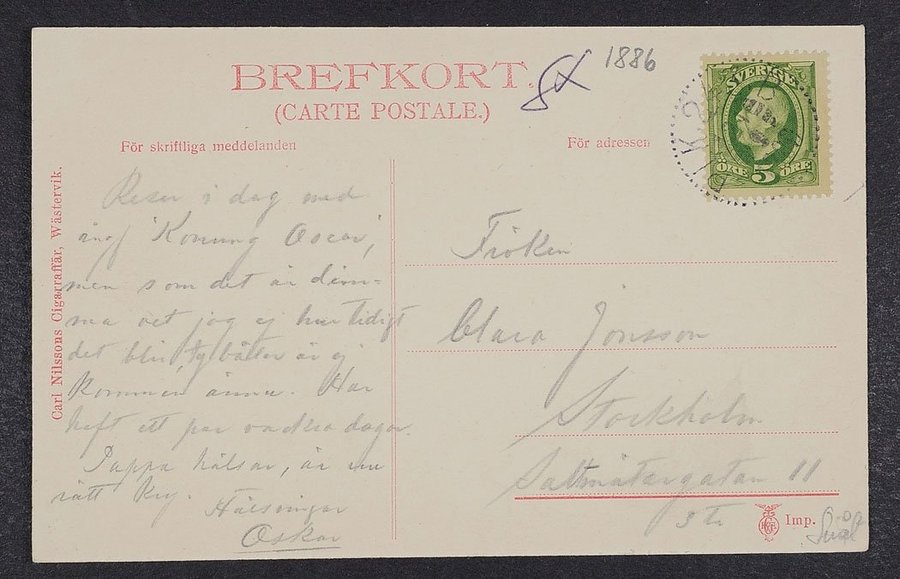 BREFKORT.
(CARTE POSTALE.)
1886
För skriftliga meddelanden
För adressen
SVERIGE
ÖRE 5 ÖRE
Carl Nilssons Cigarraffär, Wästervik.
Reser i dag med
ångf 'Konung Oscar',
men som det är dim-
ma vet jag ej hur tidigt
det blir, ty båten är ej
kommen ännu. Har
haft ett par vackra dagar.
Pappa hälsar, är nu
rätt kry.
Hälsningar
Oskar
Fröken
Clara Jonsson
Stockholm
Saltmätargatan 11
3 tr
Imp.